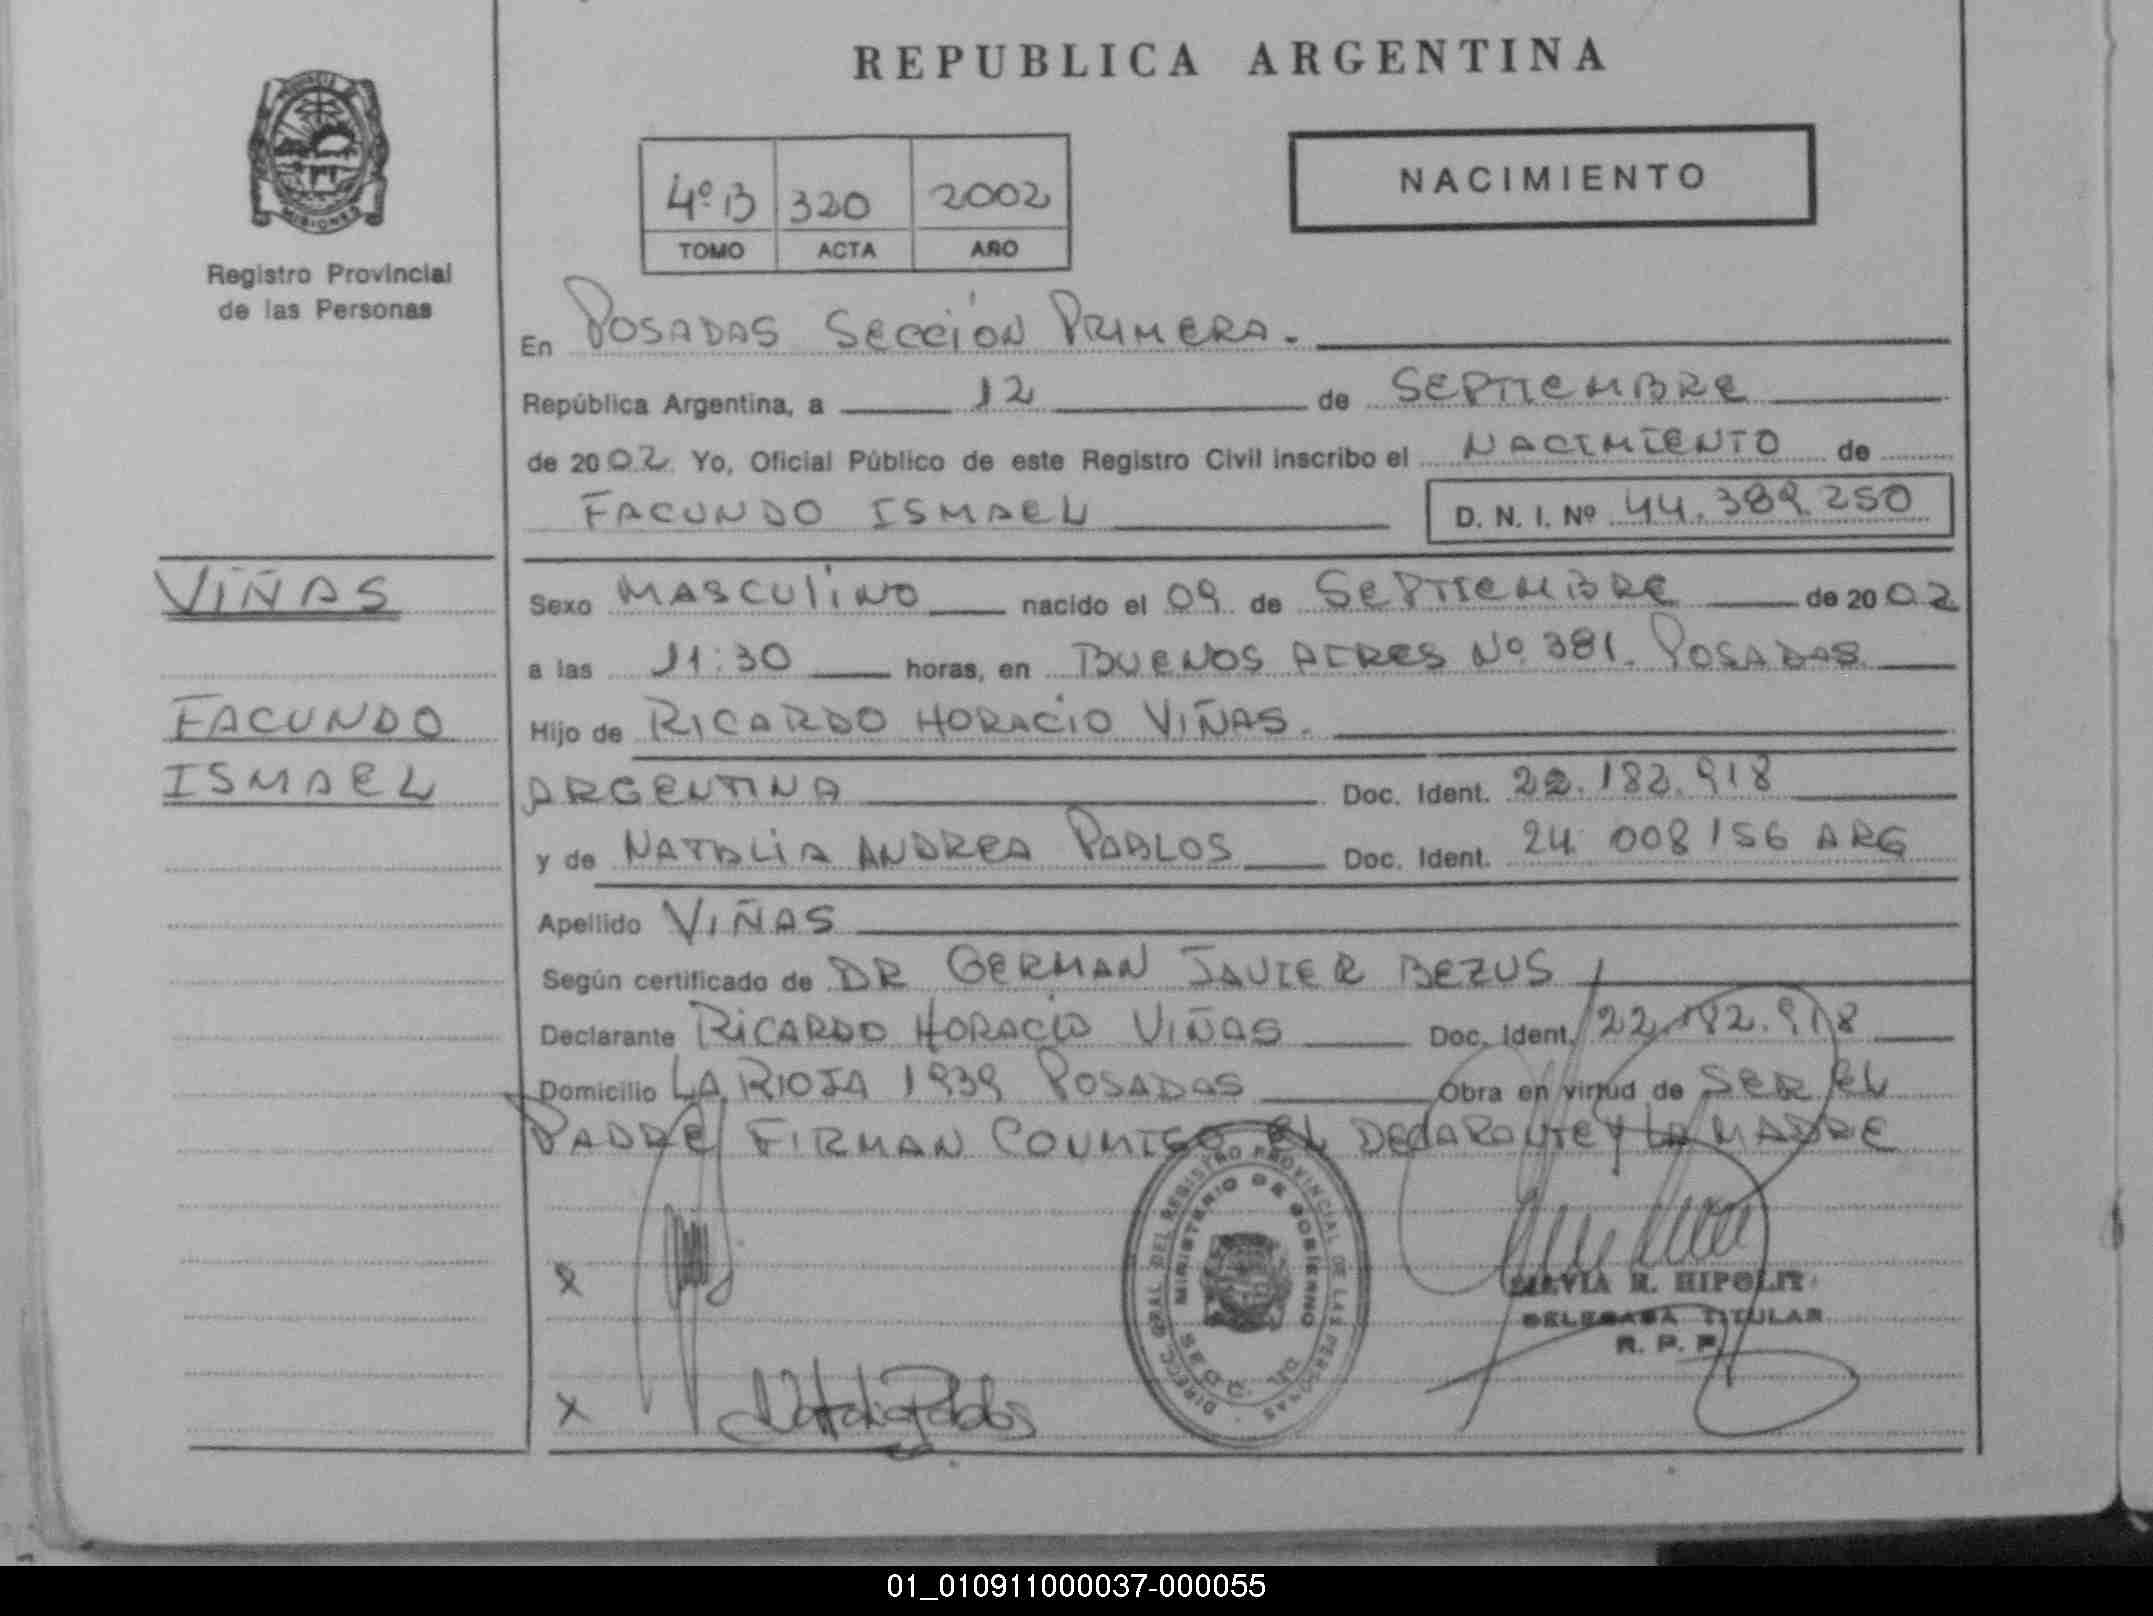 REPUBLICA ARGENTINA
NACIMIENTO
4º B 320 2002
TOMO ACTA AÑO
MISIONES
Registro Provincial
de las Personas
En POSADAS SECCIÓN PRIMERA.
República Argentina, a 12 de SEPTIEMBRE
de 2002 Yo, Oficial Público de este Registro Civil inscribo el NACIMIENTO de
FACUNDO ISMAEL D. N. I. Nº 44.389.250
VIÑAS
Sexo MASCULINO nacido el 09 de SEPTIEMBRE de 2002
a las 11:30 horas, en BUENOS AIRES Nº 381. POSADAS
FACUNDO
Hijo de RICARDO HORACIO VIÑAS.
ISMAEL
ARGENTINA Doc. Ident. 22.182.918
y de NATALIA ANDREA PABLOS Doc. Ident. 24 008 156 ARG
Apellido VIÑAS
Según certificado de DR GERMAN JAVIER BEZUS
Declarante RICARDO HORACIO VIÑAS Doc. Ident. 22.182.918
Domicilio LA RIOJA 1939 POSADAS Obra en virtud de SER EL
PADRE FIRMAN CONMIGO EL DECLARANTE Y LA MADRE
DIRECC. GRAL DEL REGISTRO PROVINCIAL DE LAS PERSONAS
MINISTERIO DE GOBIERNO
X
R. HIPOLIT
DELEGADA TITULAR
R. P. P.
X Natalia Pablos
01_010911000037-000055